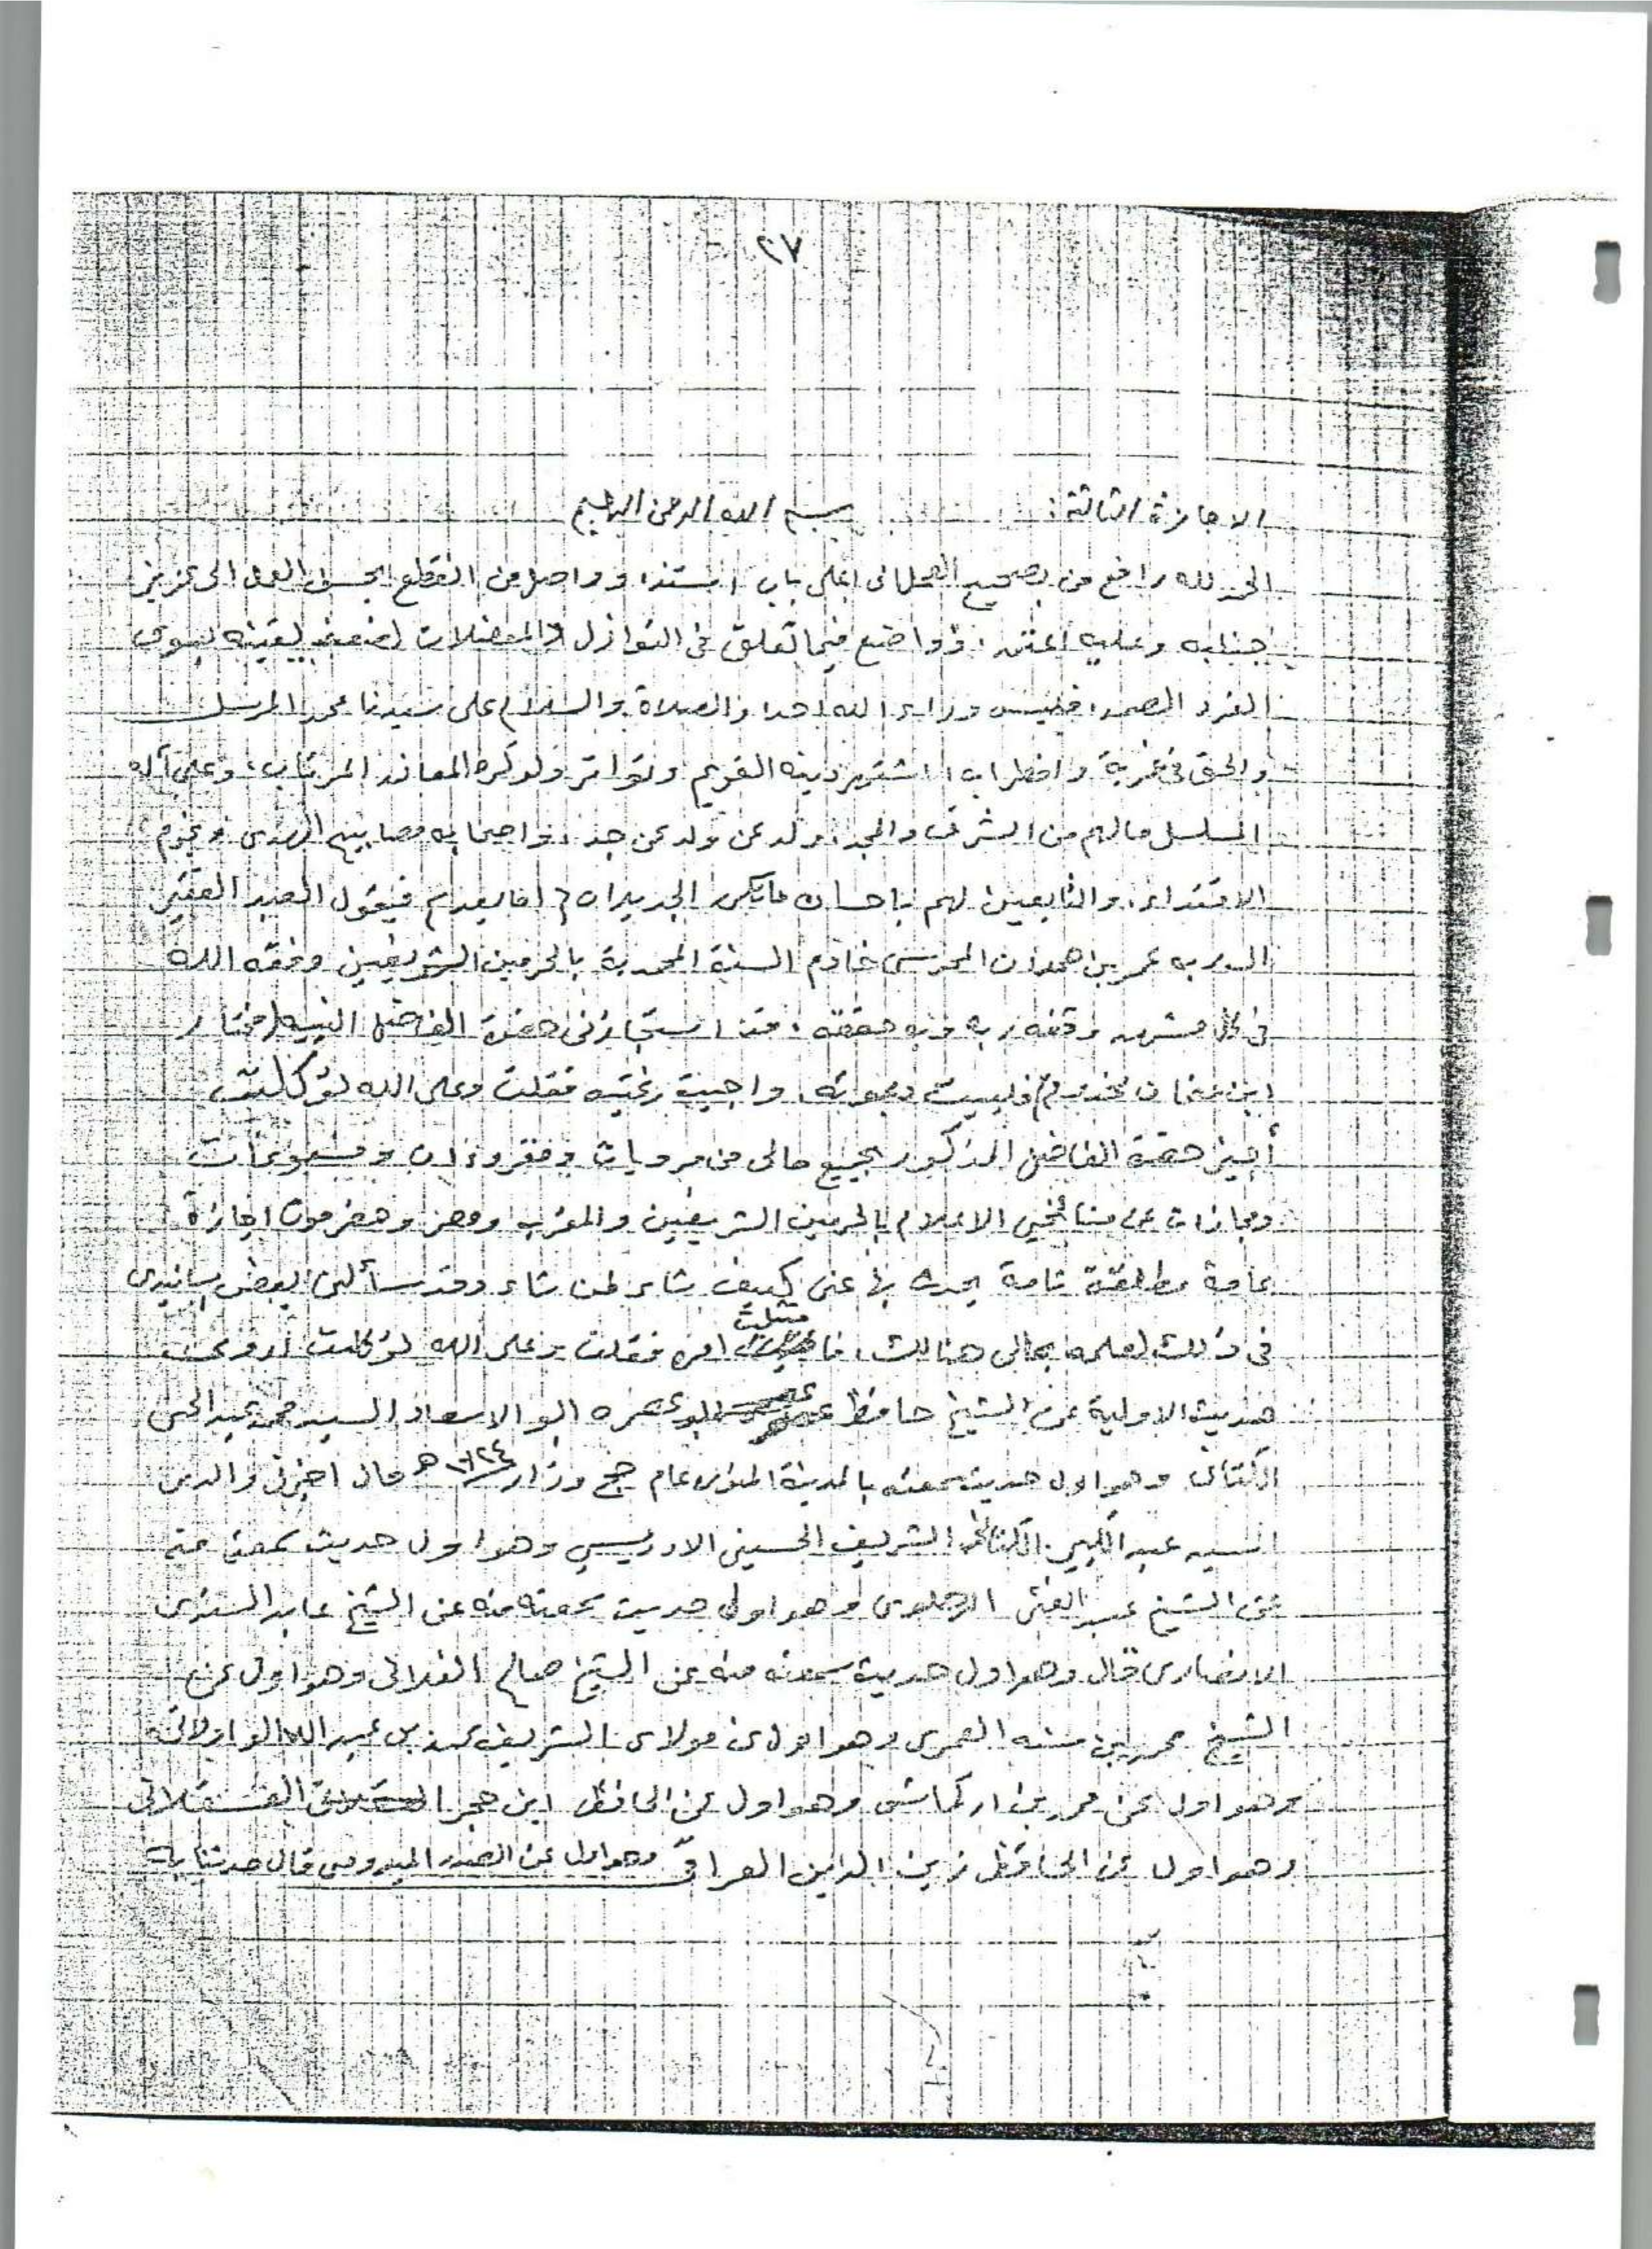 ٢٧
الاجازة الثالثة: بسم الله الرحمن الرحيم
الحمد لله رافع من بصحيح العمل الى اعلى باب استند، وواصل من انقطع بحسن العمل الى عزيز
جنابه وعليه اعتمد، وواضع فيما تعلق في النوازل والمعضلات لضعف يقينه بسوى
الفرد الصمد، فليس وراء الله احد، والصلاة والسلام على سيدنا محمد المرسل
والحق في غربة واضطراب، اشتهر دينه القويم وتواتر ولو كره المعاند المرتاب، وعلى آله
المسلسل مالهم من الشرف والمجد، ولد عن ولد عن جد، واصحابه مصابيح الهدى ونجوم
الاقتداء، والتابعين لهم باحسان ماتكرر الجديدان، اما بعد، فيقول العبد الفقير
الى ربه عمر بن حمدان المحرسى خادم السنة المحمدية بالحرمين الشريفين وفقه الله
في كل مشهد وقفه به وبه حققه، قد استجازني حضرة الفاضل النبيه (مختار
ابن عثمان مخدوم) فلبيت دعوته، واجبت رغبته فقلت وعلى الله توكلت
أجيز حضرة الفاضل المذكور بجميع مالى من مرويات ومقروءات ومسموعات
ومجازات عن مشائخي الاعلام بالحرمين الشريفين والمغرب ومصر وحضرموت اجازة
عامة مطلقة تامة يحدث بها عنى كيف شاء لمن شاء وقد سألنى بعض اسانيدى
في ذلك لعلمه بحالى هنالك، فامتثلت امره فقلت وعلى الله توكلت اروى
حديث الاولية عن الشيخ حافظ عصره ابو الاسعاد السيد محمد عبد الحى
الكتانى وهو اول حديث سمعته بالمدينة المنورة عام حج وزار ١٣٢٤ هـ قال اخبرنى والدى
السيد عبد الكبير الكتانى الشريف الحسينى الادريسي وهو اول حديث سمعته منه
عن الشيخ عبد الغنى الدهلوى وهو اول حديث سمعته منه عن الشيخ عابد السندى
الانصارى قال وهو اول حديث سمعته منه عن الشيخ صالح الفلانى وهو اول عن
الشيخ محمد بن سنه العمرى وهو اول عن مولاى الشريف محمد بن عبد الله الوازلاتى
وهو اول عن محمد بن اركماشى وهو اول عن الحافظ ابن حجر العسقلانى
وهو اول عن الحافظ زين الدين العراقى وهو اول عن الصدر الميدومى قال حدثنا به